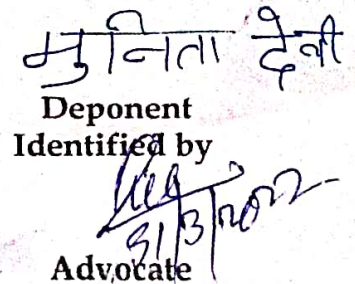 मुनिता देवी
Deponent
Identified by
31/3/2022
Advocate